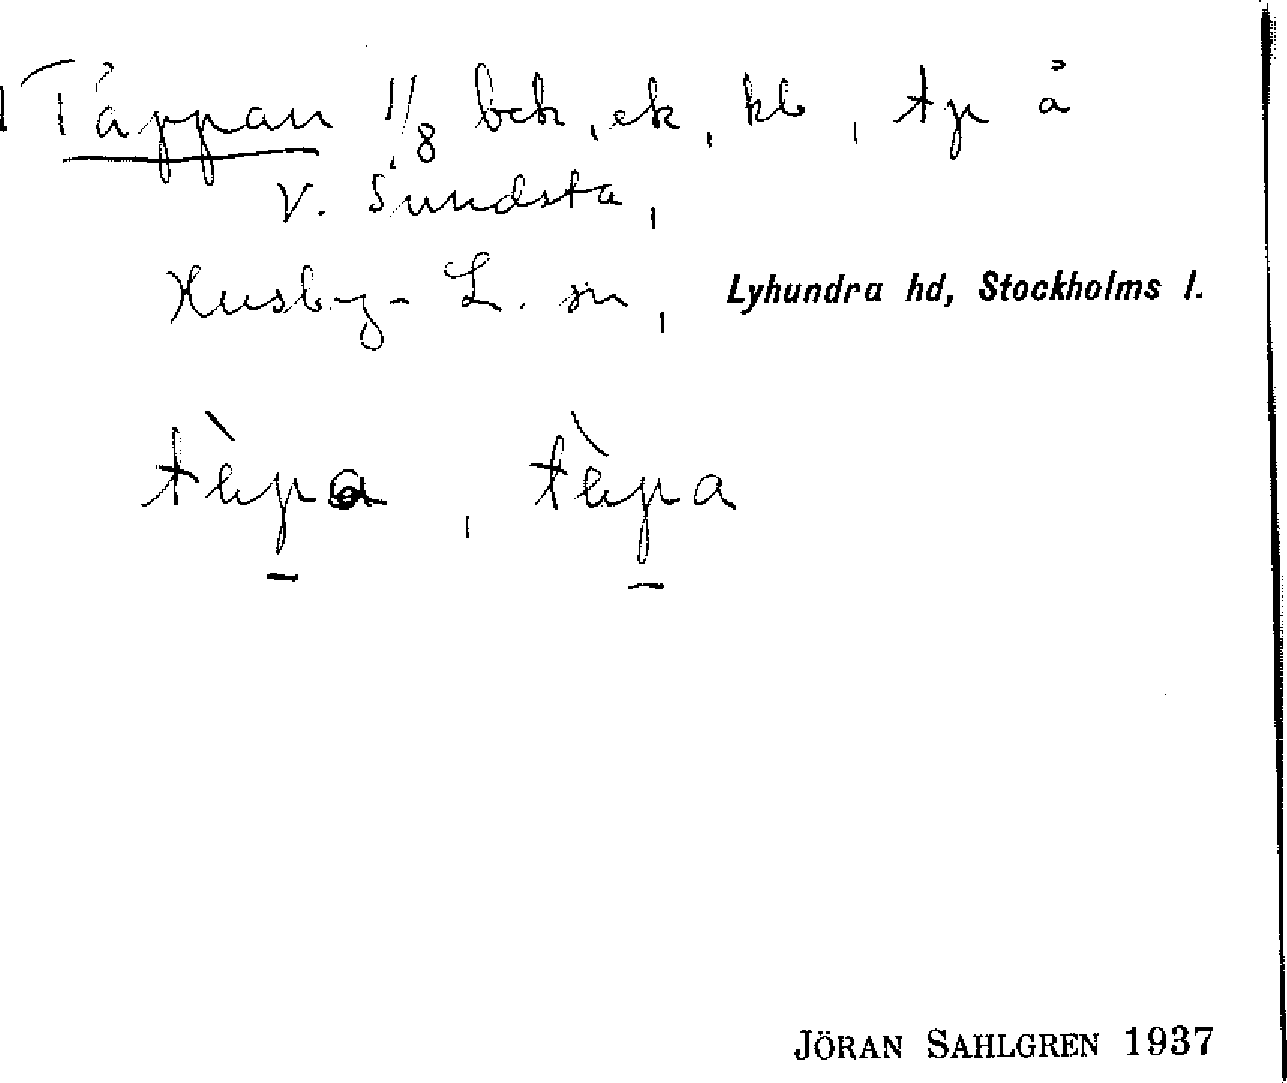 Täppan 1/8 bek, ek, kb, tp å
V. Sundsta,
Husby-L. sn, Lyhundra hd, Stockholms l.
tèpa, tèpa
JÖRAN SAHLGREN 1937